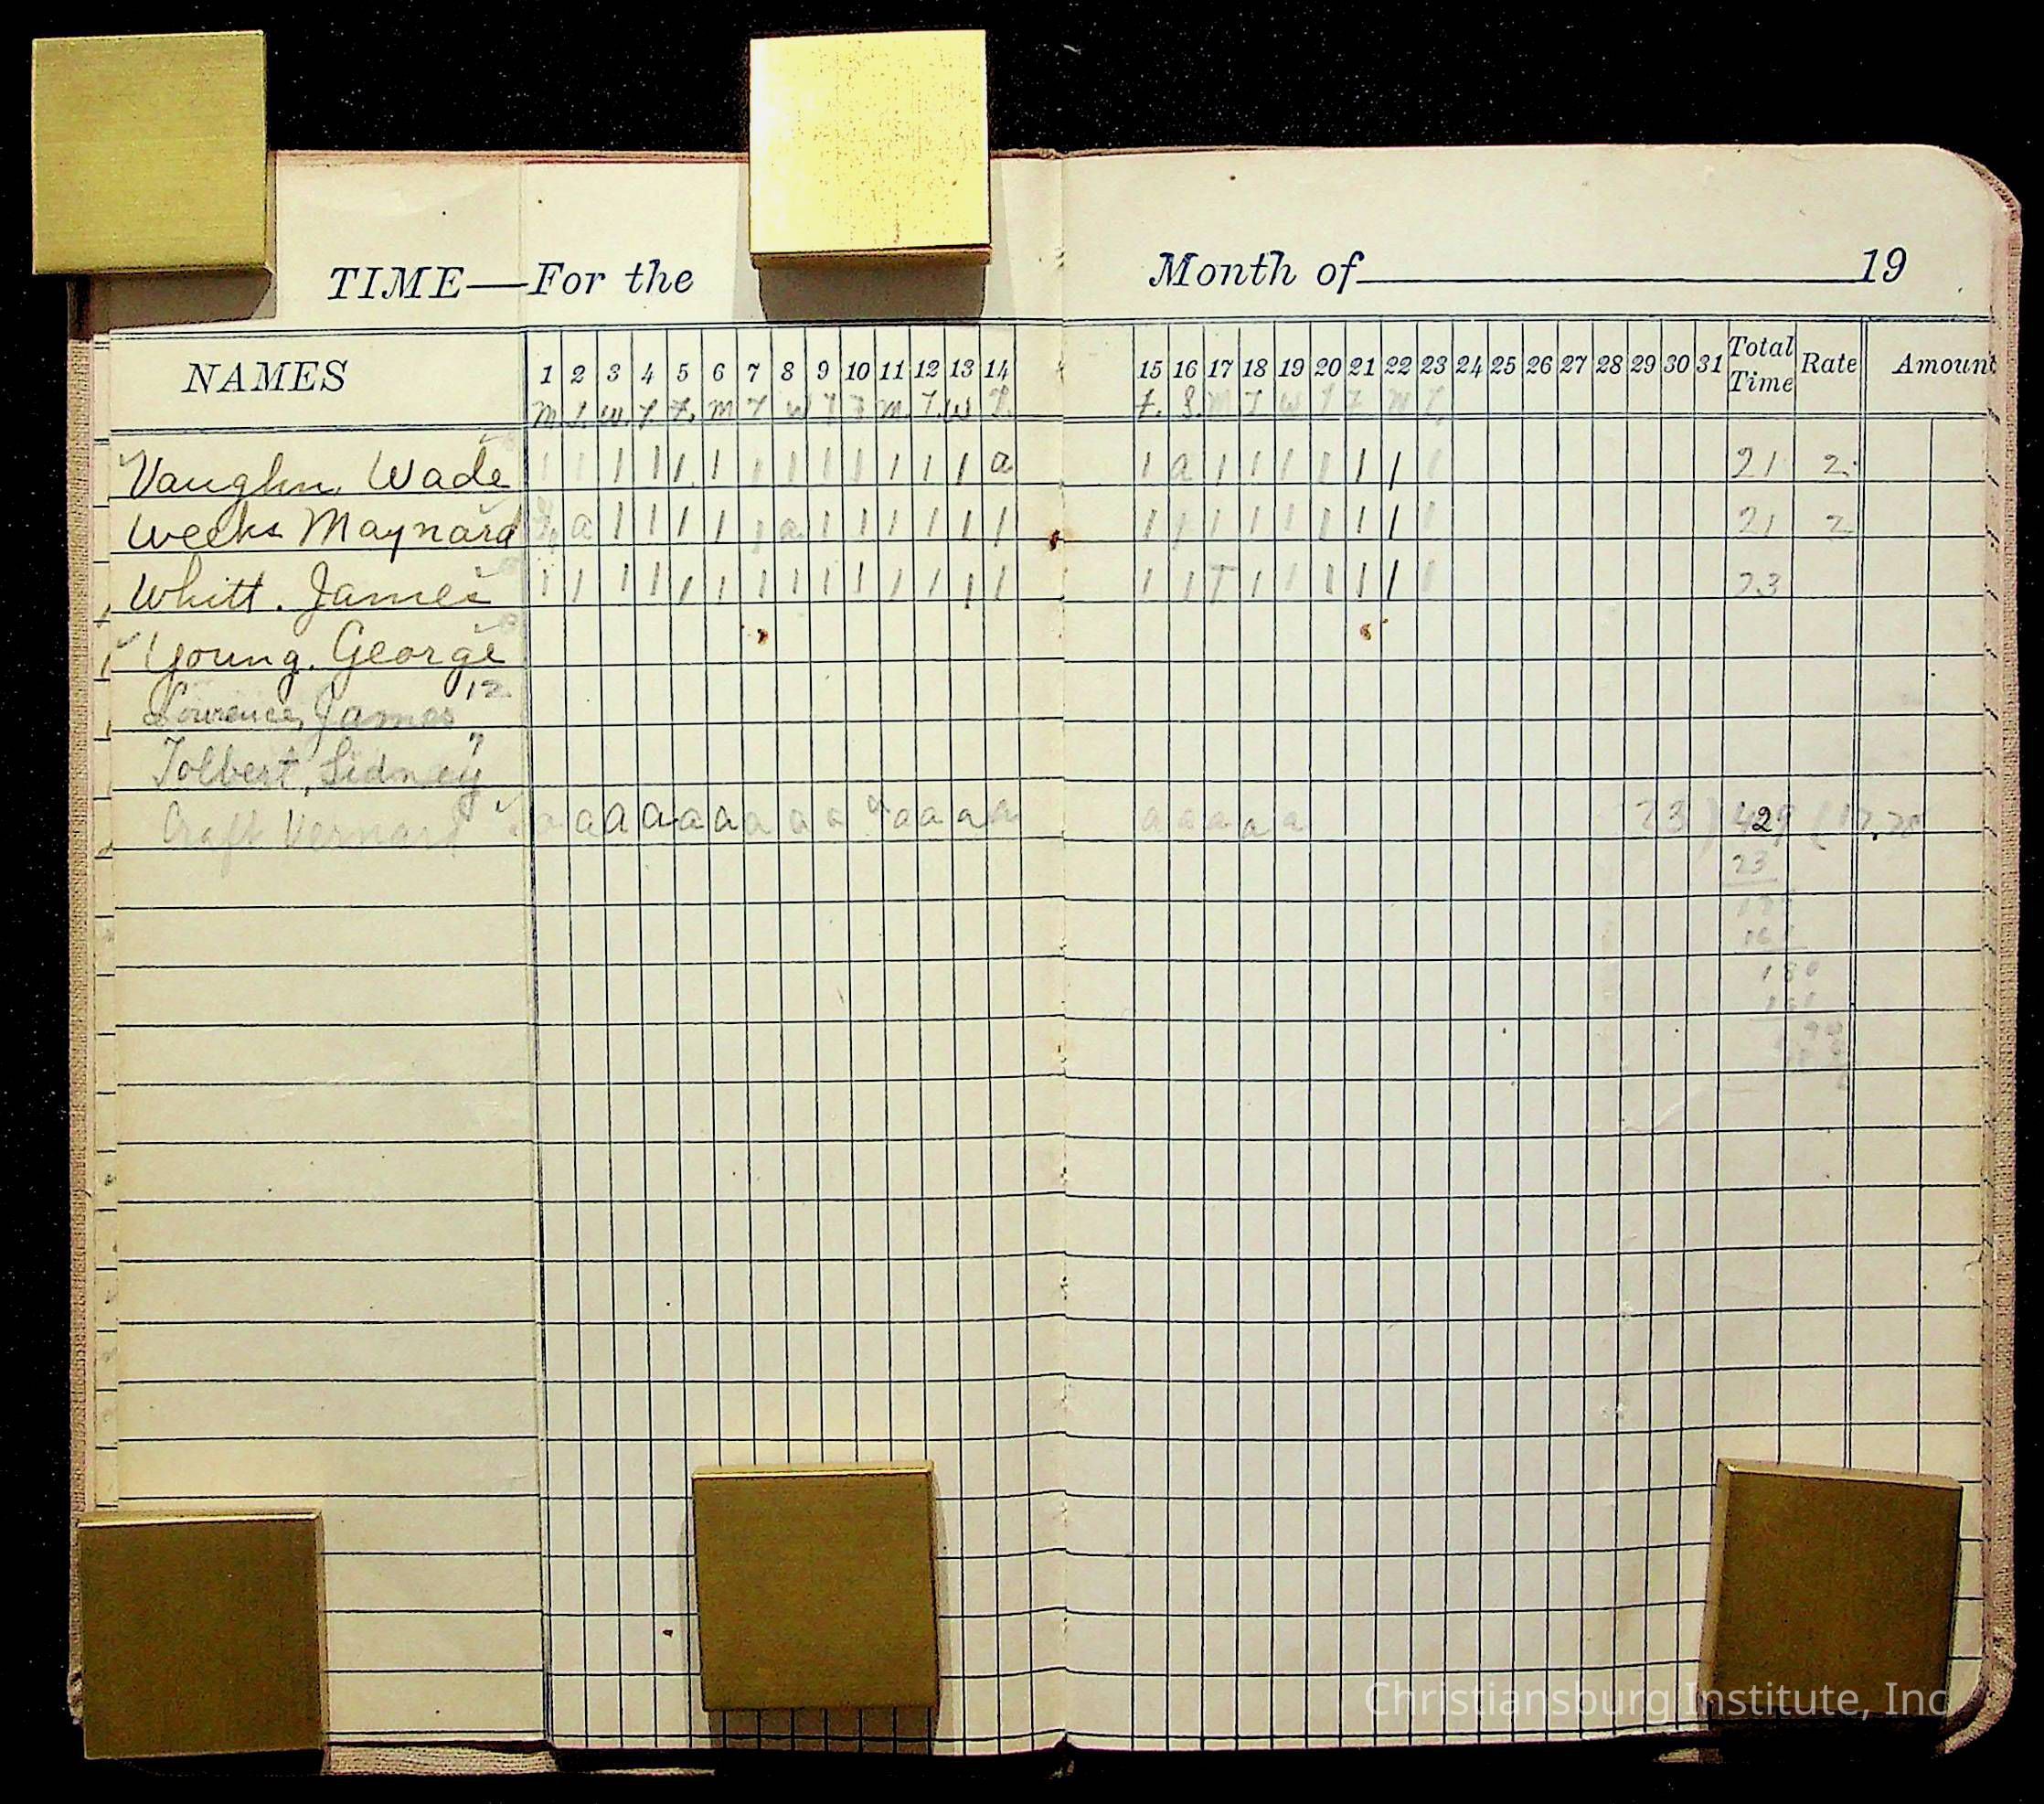 TIME—For the Month of 19
NAMES 1 2 3 4 5 6 7 8 9 10 11 12 13 14 15 16 17 18 19 20 21 22 23 24 25 26 27 28 29 30 31 Total Time Rate Amount
M. T. W. T. F. M T W T F M. T. W T. F. S. M T W T F M T.
Vaughn, Wade 1 1 1 1 1 1 1 1 1 1 1 1 1 a 1 a 1 1 1 1 1 1 1 21 2
Weeks Maynard a 1 1 1 1 1 a 1 1 1 1 1 1 1 1 1 1 1 1 1 1 1 21 2
Whitt. James 1 1 1 1 1 1 1 1 1 1 1 1 1 1 1 1 T 1 1 1 1 1 1 23
Young. George
12
Lowrence, James
7
Tolbert, Sidney
Craft Vernard a a a a a a a a a a a a a a a a a a 23 ) 429 (
23
180
Christiansburg Institute, Inc